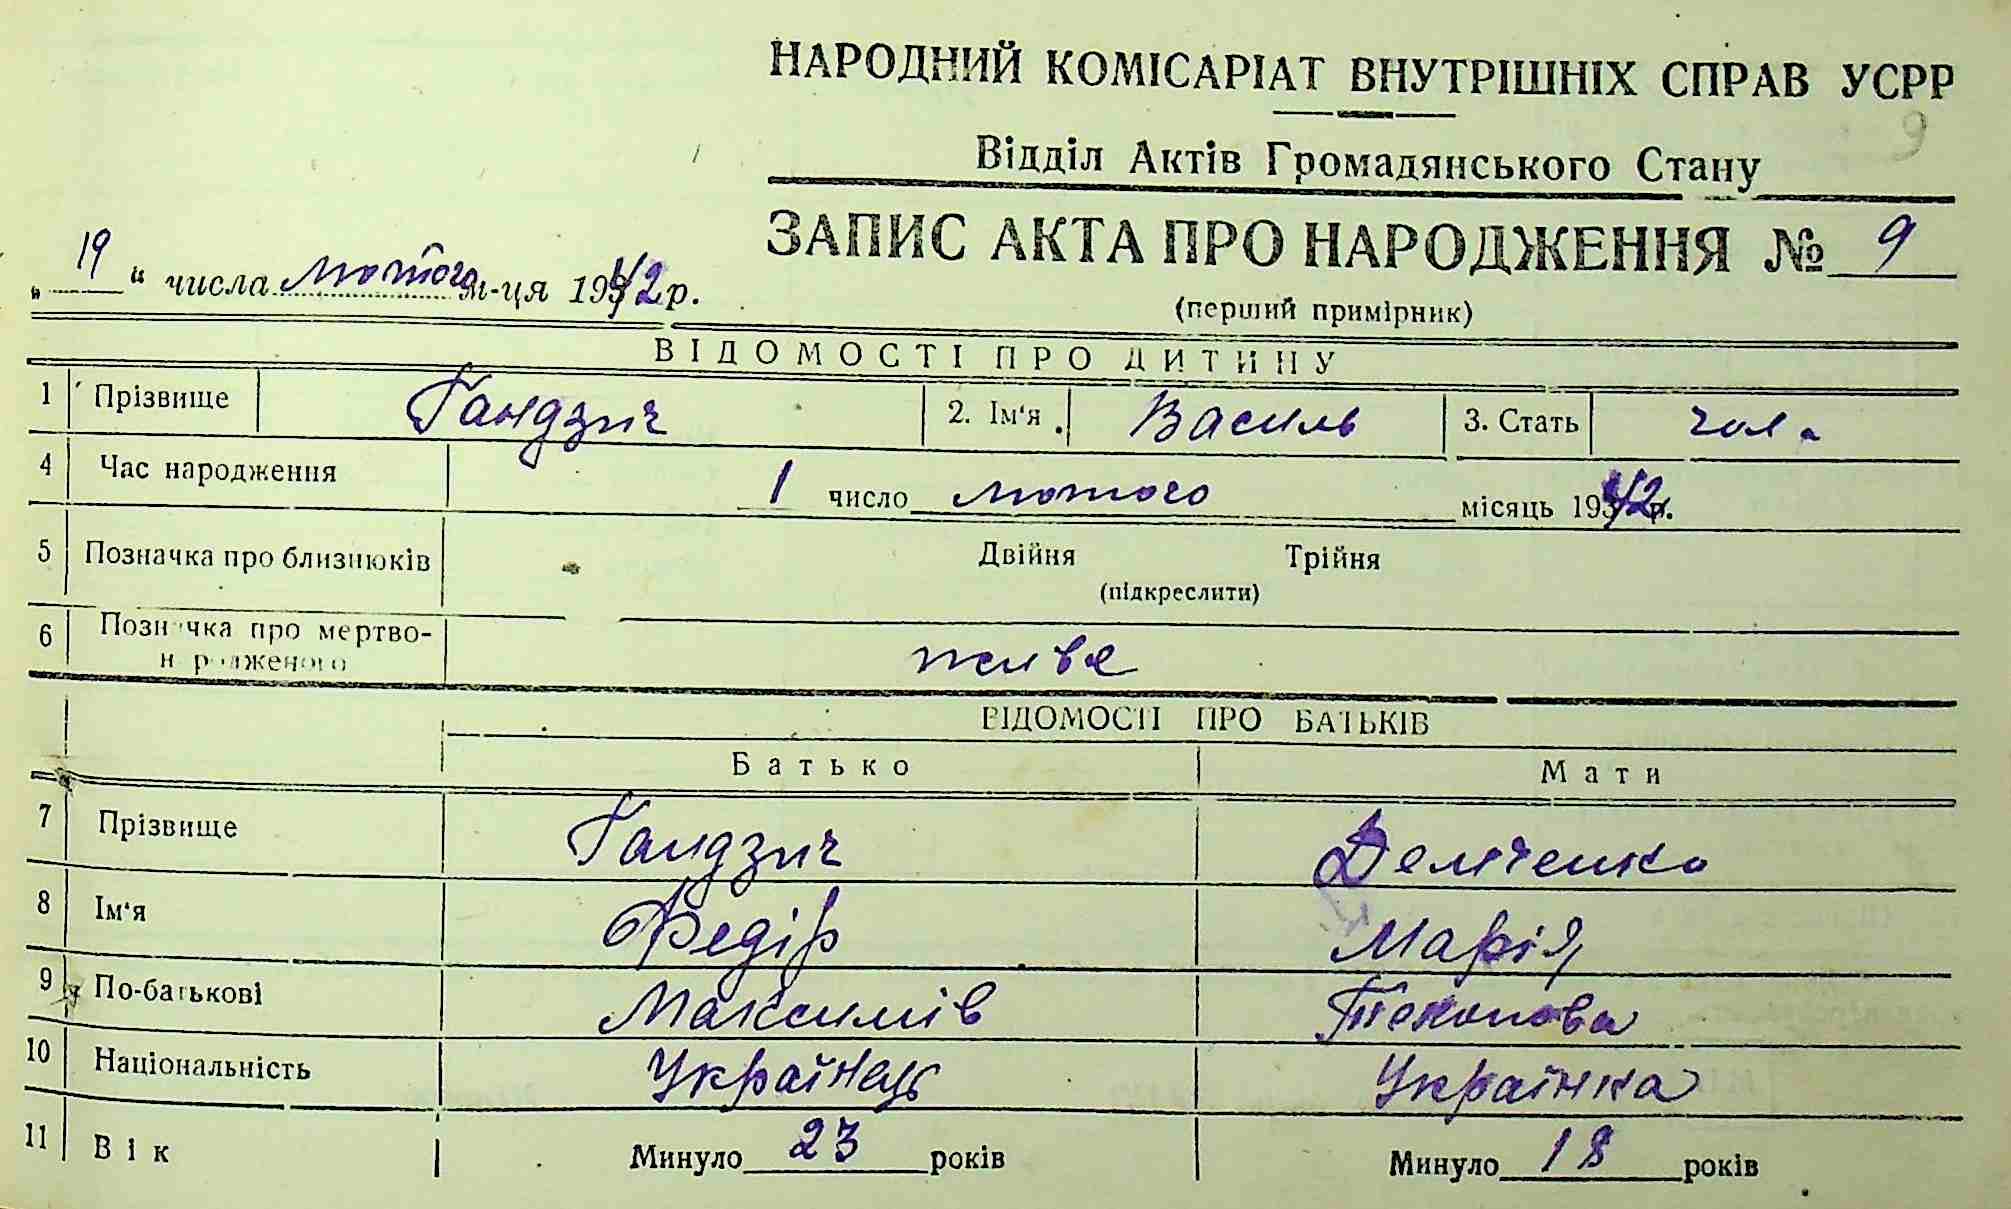 НАРОДНИЙ КОМІСАРІАТ ВНУТРІШНІХ СПРАВ УСРР
9
Відділ Актів Громадянського Стану
ЗАПИС АКТА ПРО НАРОДЖЕННЯ № 9
„ 19 “ числа лютого м-ця 1942 р.
(перший примірник)
ВІДОМОСТІ ПРО ДИТИНУ
1 Прізвище Гандзич 2. Ім'я Василь 3. Стать чол.
4 Час народження 1 число лютого місяць 1942 р.
5 Позначка про близнюків Двійня Трійня
(підкреслити)
6 Позначка про мертво-
народженого живе
ВІДОМОСТІ ПРО БАТЬКІВ
Батько Мати
7 Прізвище Гандзич Демченко
8 Ім'я Федір Марія
9 По-батькові Максимів
10 Національність Українець Українка
11 Вік Минуло 23 років Минуло 18 років